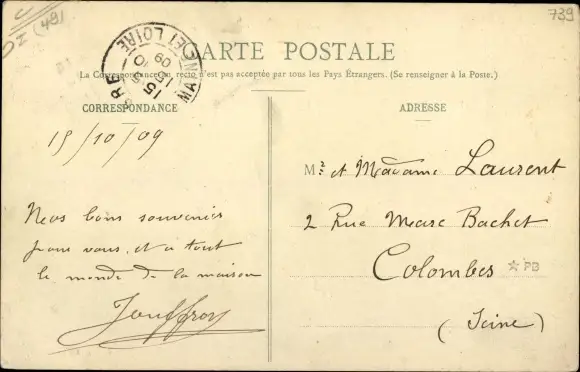 (49)
739
CARTE POSTALE
La Correspondance au recto n'est pas acceptée par tous les Pays Étrangers. (Se renseigner à la Poste.)
CORRESPONDANCE
ADRESSE
ET LOIRE
15
10
09
15/10/09
Mr et Madame Laurent
2 Rue Marc Bachet
Colombes
(Seine)
PB
Nos bons souvenirs
pour vous, et à tout
le monde de la maison
Jouffroy